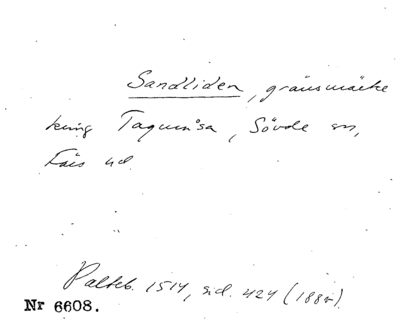 Sandliden, gränsmärke
kring Tagumåsa, Sövde sn,
Färs hd.
Palteb. 1514, sid. 424 (188 ).
Nr 6608.